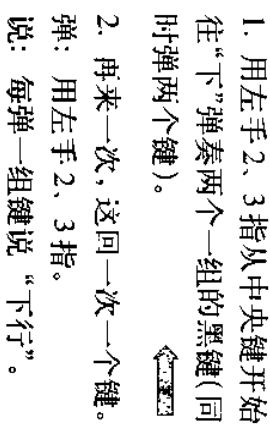 1. 用左手2、3指从中央键开始
往“下”弹奏两个一组的黑键(同
时弹两个键)。
2. 再来一次，这回一次一个键。
弹：用左手2、3指。
说：每弹一组键说“下行”。